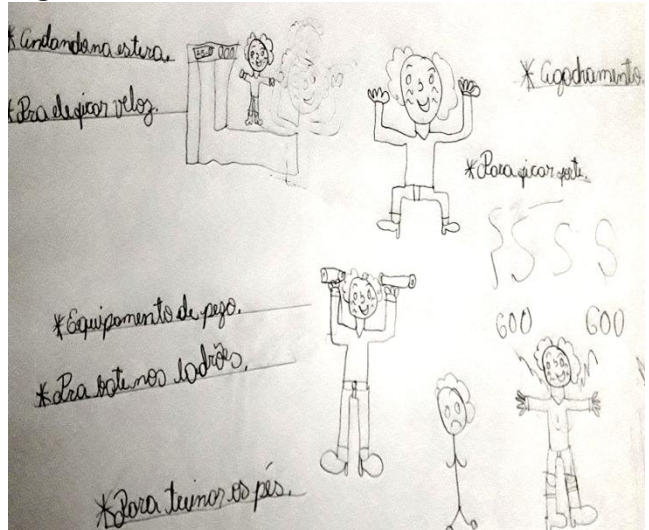 * Andandona estera.
* Pra ele ficar veloz.
* Agachamento
* Para ficar forte.
S S S S
600 600
* Equipamento de pezo.
* Pra bate nos ladrões.
* Para treinar os pés.